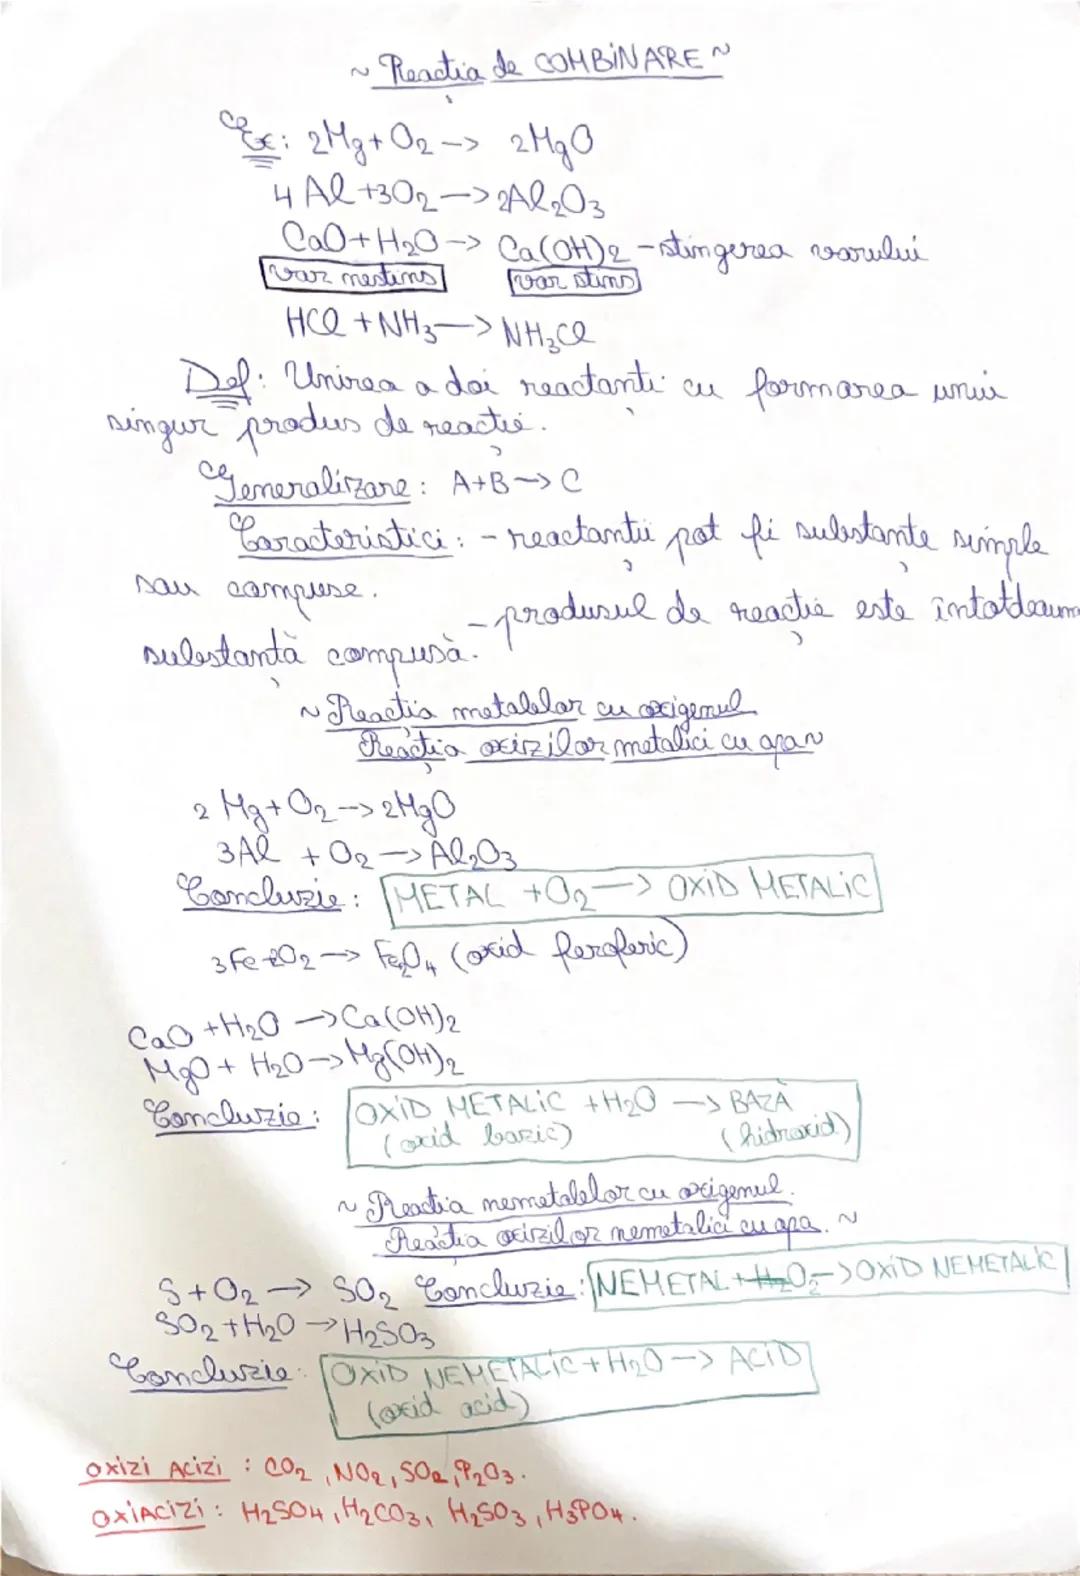 ~ Reacția de COMBINARE ~
Ex: 2Mg + O2 -> 2MgO
4 Al + 3O2 -> 2Al2O3
CaO + H2O -> Ca(OH)2 - stingerea varului
var nestins var stins
HCl + NH3 -> NH3Cl
Def: Unirea a doi reactanți cu formarea unui
singur produs de reacție.
Generalizare: A+B -> C
Caracteristici: - reactanții pot fi substanțe simple
sau compuse.
- produsul de reacție este întotdeauna
substanță compusă.
~ Reacția metalelor cu oxigenul
Reacția oxizilor metalici cu apa ~
2 Mg + O2 -> 2MgO
3Al + O2 -> Al2O3
Concluzie: METAL + O2 -> OXiD METALiC
3Fe + 2O2 -> Fe3O4 (oxid feroferic)
CaO + H2O -> Ca(OH)2
MgO + H2O -> Mg(OH)2
Concluzie: OXiD METALiC + H2O -> BAZĂ
(oxid bazic) (hidroxid)
~ Reacția nemetalelor cu oxigenul.
Reacția oxizilor nemetalici cu apa. ~
S + O2 -> SO2 Concluzie: NEMETAL + O2 -> OXiD NEMETALiC
SO2 + H2O -> H2SO3
Concluzie: OXiD NEMETALiC + H2O -> ACiD
(oxid acid)
OXiZi ACiZi : CO2, NO2, SO2, P2O3.
OXiACiZi : H2SO4, H2CO3, H2SO3, H3PO4.